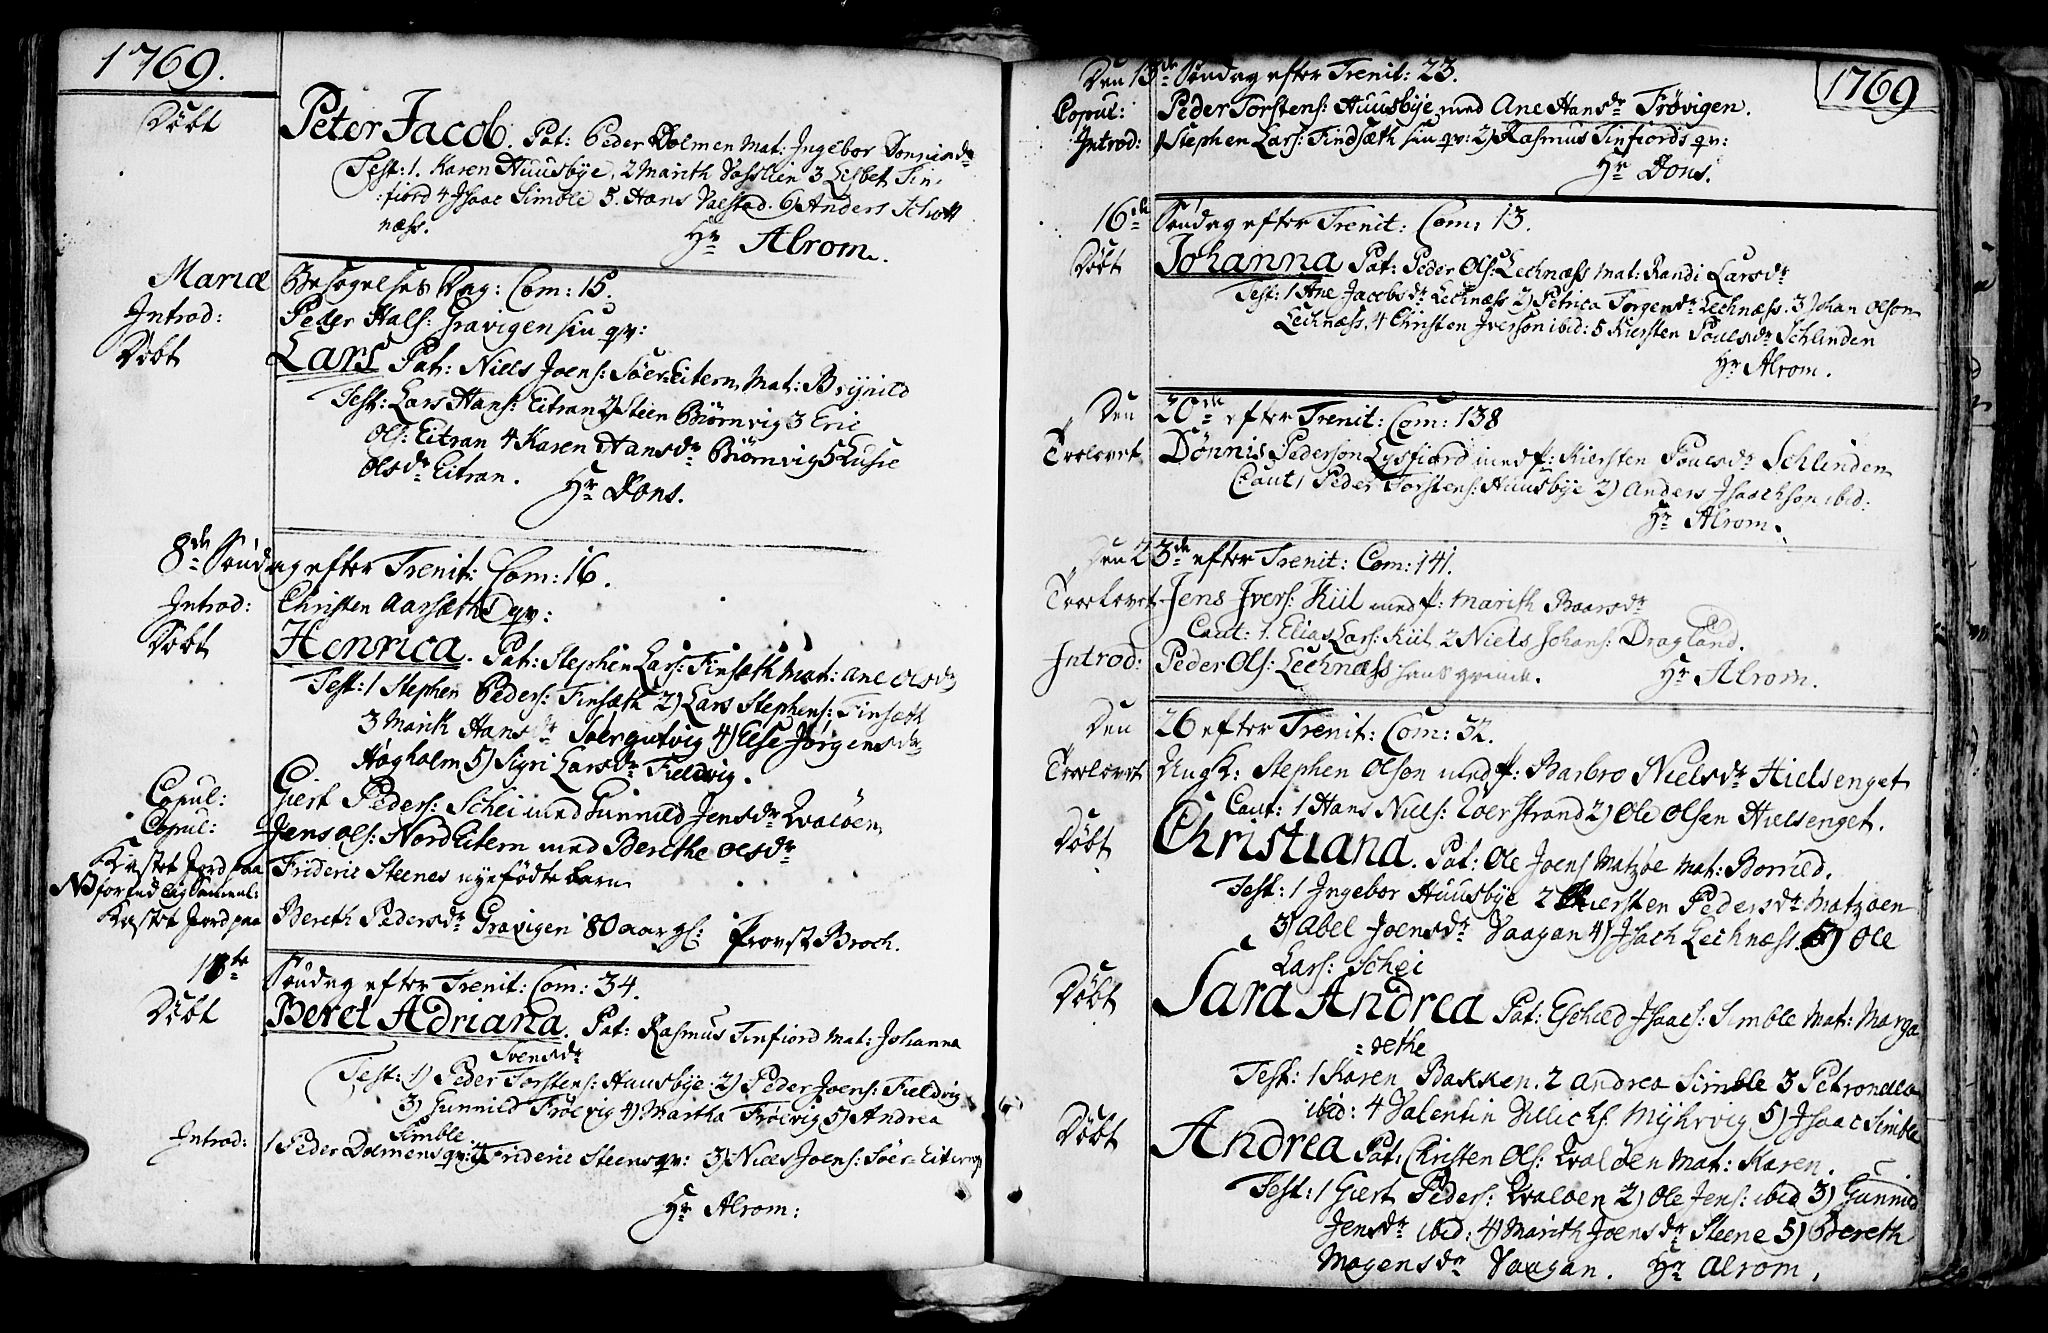 1769.
Döbt Peter Jacob. Pat: Peder Dolmen Mat: Ingebor Dönnisdr
Test: 1. Karen Huusbye, 2 Marith Vasslien 3 Lisbet Tin-
:fiord 4 Isaac Simble 5. Hans Valstad. 6) Anders Schott
næss. Hr Alrom.
Mariæ Besøgelses Dag: Com: 15.
Introd: Peder Hals: Gravigen sin qv:
Döbt Lars Pat: Niels Joens: Söer-Eitern, Mat: Brynild
Test: Lars Hans: Eitran 2) Steen Biörnvig 3 Eric
Ols: Eitran 4 Karen Hansdr Biörnvig 5 Lusie
Olsdr Eitran. Hr Dons.
8de Söndag efter Trenit: Com: 16.
Introd: Christen Aarsæths qv:
Döbt Henrica. Pat: Stephen Lars: Finsæth Mat: Ane Olsdr
Test: 1 Stephen Peders: Finsæth 2) Lars Stephens: Finsæth
3 Marith Hansdr Söergutvig 4) Else Jörgensdr
Høgholm 5) Sigri Larsdr Fieldvig.
Copul: Giert Peders: Schei med Gunnild Jensdr Qvalöen
Copul: Jens Ols: Nord Eitern med Berethe Olsdr
Kastet Jord paa Frideric Steenes nyefödte barn
NB
Kastet Jord paa Bereth Pedersdr Gravigen 80 aar gl: Provst Broch.
18te Söndag efter Trenit: Com: 34.
Döbt Beret Adriana. Pat: Rasmus Tinfiord Mat: Johanna
Svensdr
Test: 1) Peder Torstens: Huusbye 2) Peder Joens: Fieldvig
3) Gunnild Fröevig 4) Martha Fröevig 5) Andrea
Simble
Introd: 1 Peder Dolmens qv: 2) Frideric Steens qv: 3) Niels Joens: Söer-Eiterns
Hr Alrom:
1769
Den 15de Söndag efter Trenit: 23.
Copul: Peder Torstens: Huusbye med Ane Hansdr Fröevigen.
Introd: 1 Stephen Lars: Findsæth sin qv: 2) Rasmus Tinfiords qv:
Hr Dons.
16de Söndag efter Trenit: Com: 13.
Döbt Johanna Pat: Peder Ols: Lechnæss Mat: Randi Larsdr
Test: 1 Ane Jacobsdr Lechnæss 2) Petrica Torgersdr Lechnæss. 3 Johan Olson
Lechnæss, 4 Christen Iverson ibid: 5 Kiersten Poulsdr Schlinden
Hr Alrom.
Den 20de efter Trenit: Com: 138
Troelovet Dönnis Pederson Lysfiord med p: Kiersten Poulsdr Schlinden
Caut 1 Peder Torstens: Huusbye 2) Anders Isachson ibid:
Hr Alrom.
Den 23de efter Trenit: Com: 141.
Troelovet Jens Ivers: Kiil med p: Marith Baarsdr
Caut: 1. Elias Lars: Kiil 2 Niels Johans: Dragland.
Introd: Peder Ols: Lechnæss hans qvinde. Hr Alrom.
Den 26 efter Trenit: Com: 32.
Troelovet Ungk: Stephen Olson med p: Barbro Nielsdr Hielsenget
Caut: 1 Hans Niels: Qverstrand 2) Ole Olsen Hielsenget.
Döbt Christiana. Pat: Ole Joens Matzöe Mat: Borrild.
Test: 1 Ingebor Huusbye 2 Kiersten Pedersdr Matzöen
3) Abel Joensdr Vaagan 4) Isach Lechnæss 5) Ole
Lars: Schei
Döbt Sara Andrea Pat: Eschild Isaacs: Simble Mat: Marga
=rethe
Test: 1 Karen Bakken. 2 Andrea Simble 3 Petronella
ibid: 4 Valentin Myhrvig 5) Isaac Simble
Döbt Andrea Pat: Christen Ols: Qvalöen Mat: Karen.
Test: 1 Giert Peders: Qvalöen 2) Ole Jens: ibid 3) Gunnild
Jensdr ibid: 4) Marith Joensdr Steene 5) Bereth
Mogensdr Vaagan. Hr Alrom.